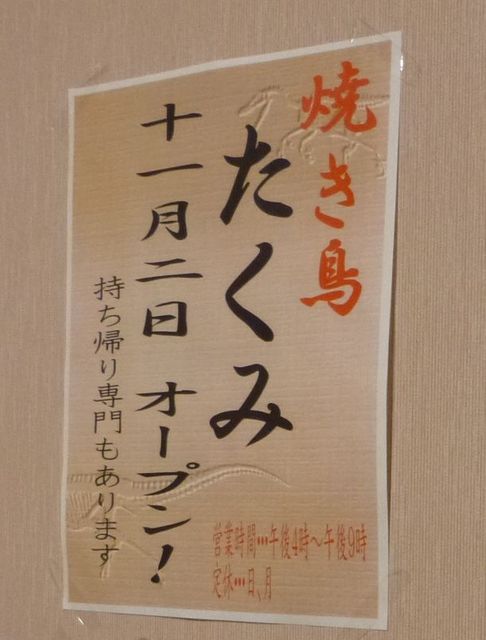 焼き鳥
たくみ
十一月二日 オープン!
持ち帰り専門もあります
営業時間…午後4時〜午後9時
定休…日、月